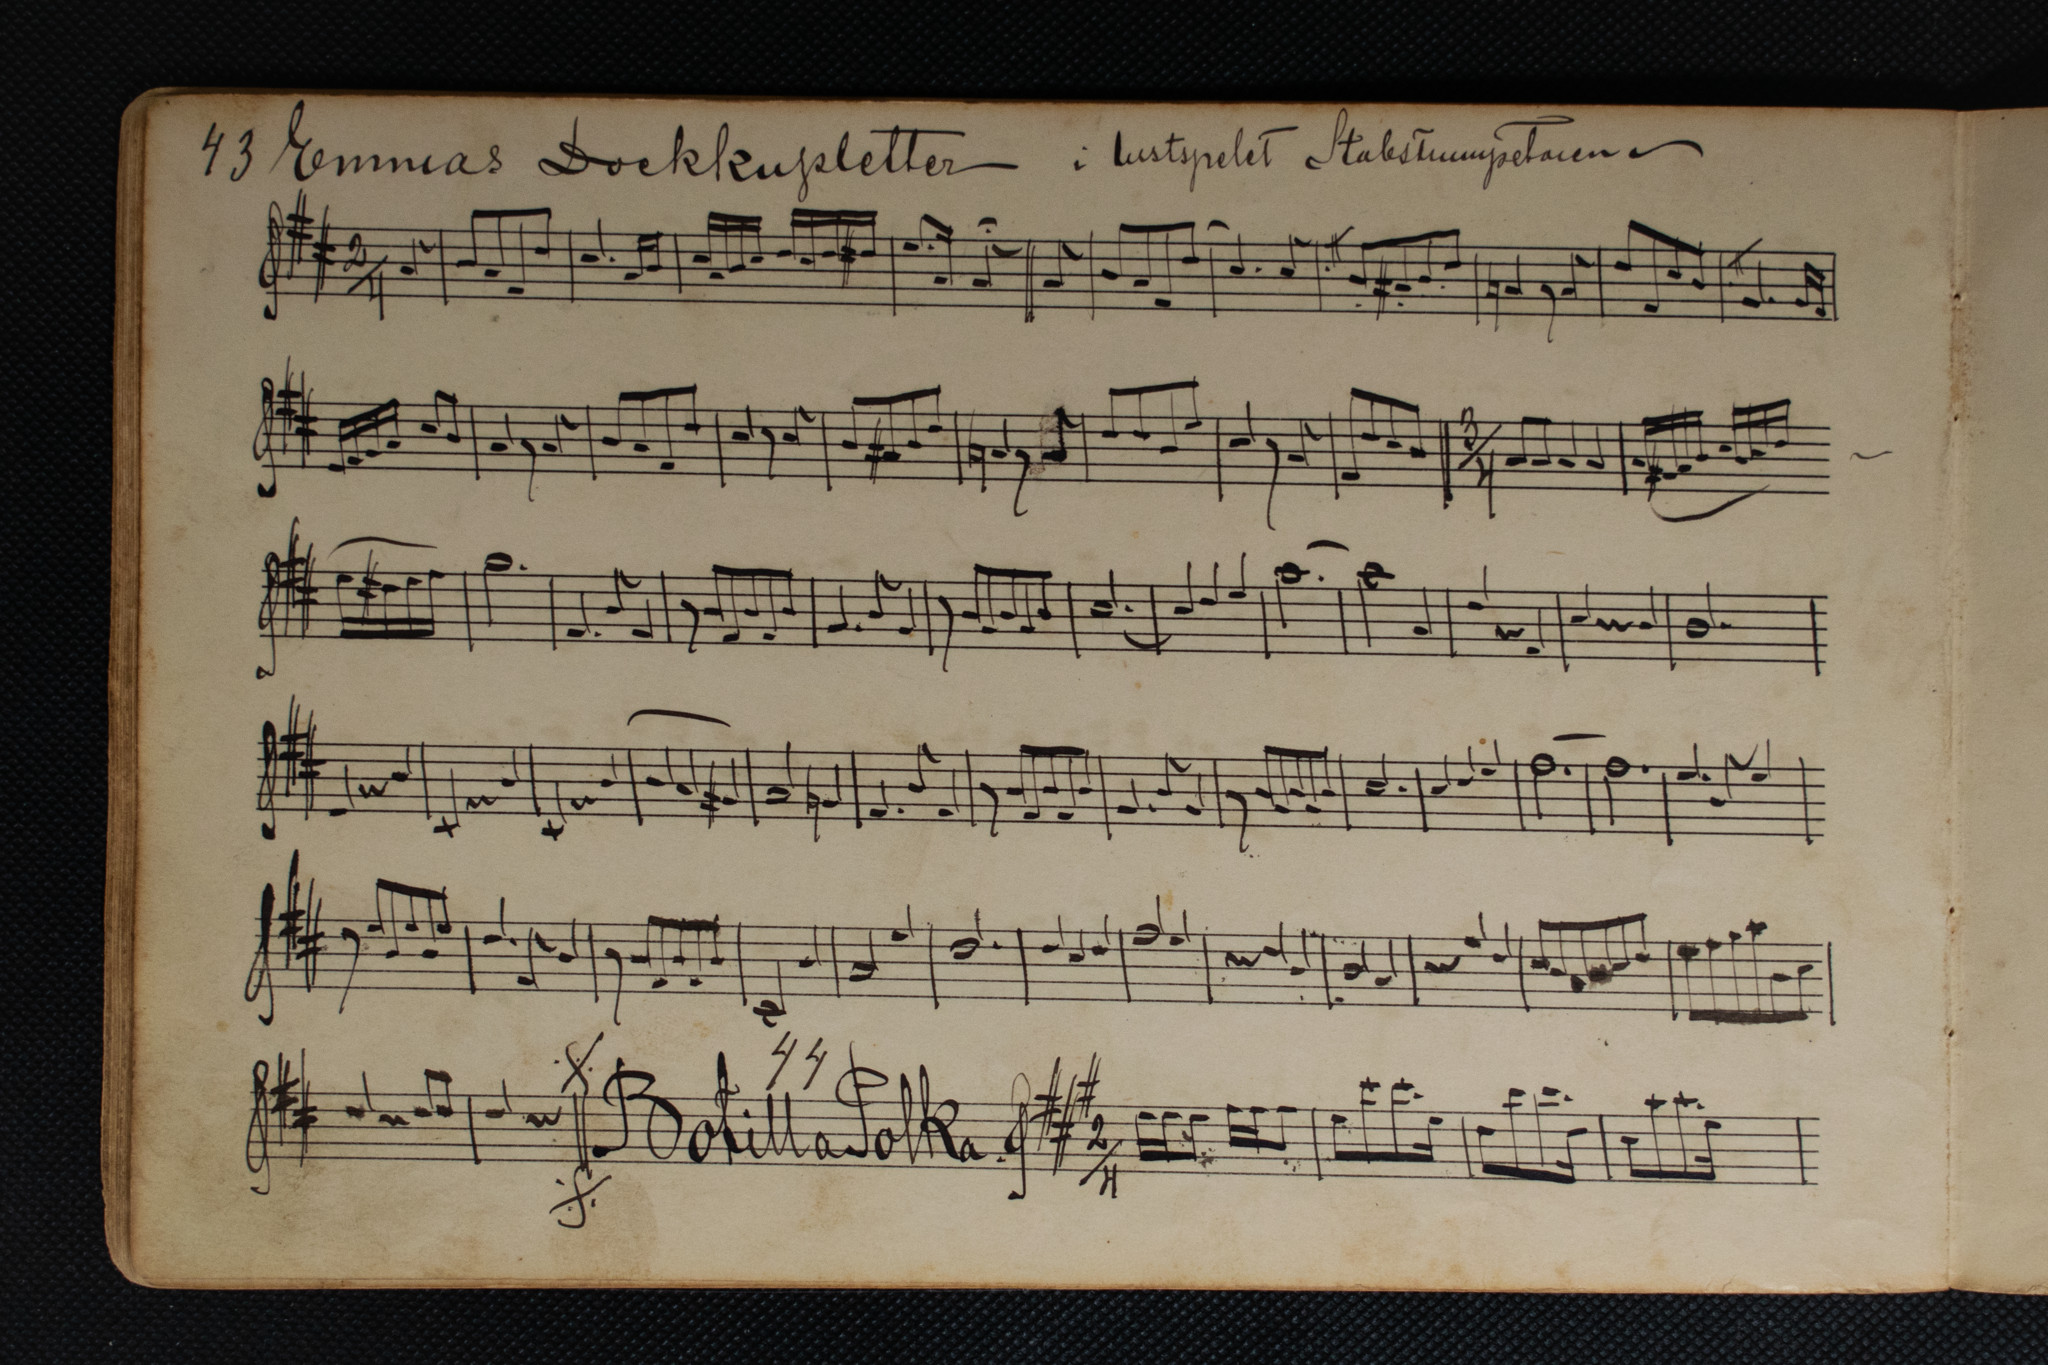 43 Emmas Dockkupletter i lustspelet Stabstrumpetaren
2/4
3/4
44
Botilla Polka. 2/4